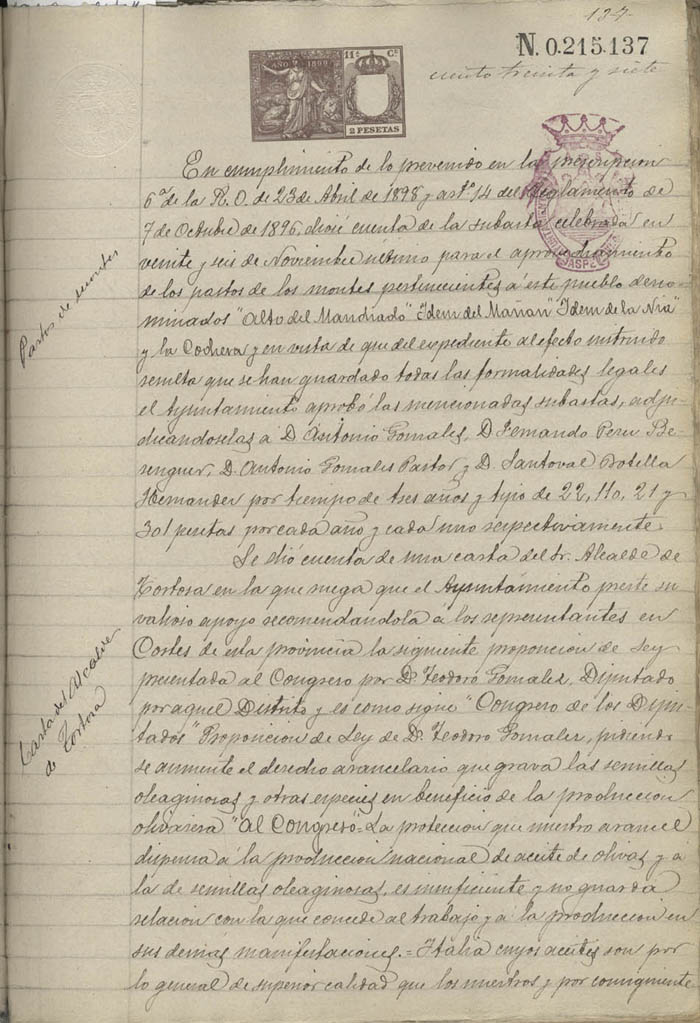 137
N. 0.215.137
ciento treinta y siete
AÑO 1899
11ª Cᵉ
2 PESETAS
JASPE
Pastos de montes
En cumplimiento de lo prevenido en la prescripcion
6ª de la R. O. de 23 de Abril de 1898 y artº 14 del Reglamento de
7 de Octubre de 1896, dióse cuenta de la subasta celebrada en
veinte y seis de Noviembre último para el aprovechamiento
de los pastos de los montes pertenecientes á este pueblo deno-
minados "Alto del Mandiado" Idem del Mañan" Idem de la
y la Cochera y en vista de que del expediente al efecto instruido
resulta que se han guardado todas las formalidades legales
el Ayuntamiento aprobó las mencionadas subastas, adju-
dicandoselas á D. Antonio Gomales, D Fernando Peru Be-
renguer, D. Antonio Gomales Pastor y D. Santoval Botella
Hernander por tiempo de tres años y tipo de 22, 110, 21 y
301 pesetas por cada año y cada uno respectivamente.
Se dió cuenta de una carta del Sr. Alcalde de
Carta del Alcalde
de Tortosa
Tortosa en la que ruega que el Ayuntamiento preste su
valioso apoyo recomendandola á los representantes en
Cortes de esta provincia la siguiente proposicion de Ley
presentada al Congreso por D. Teodoro Gomalez, Diputado
por aquel Distrito y es como sigue "Congreso de los Dipu-
tados" Proposicion de Ley de D. Teodoro Gomalez, pidiendo
se aumente el derecho arancelario que grava las semillas
oleaginosas y otras especies en beneficio de la produccion
olivarera "Al Congreso"= La proteccion que nuestro arancel
dispensa á la produccion nacional de aceite de olivas y a
la de semillas oleaginosas, es ineficiente y no guarda
relacion con la que concede al trabajo y á la produccion en
sus demás manifestaciones.= Italia cuyos aceites son por
lo general de superior calidad que los nuestros y por consiguiente